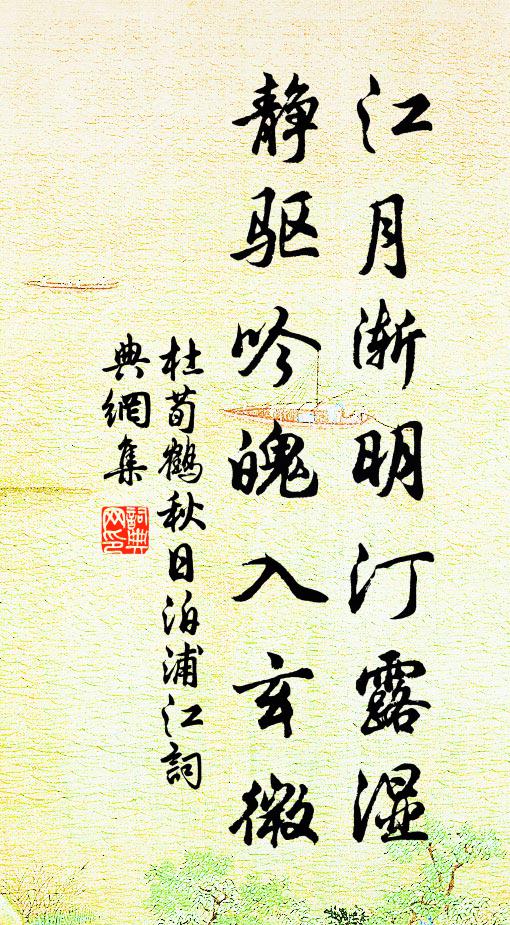 江月渐明汀露湿
静驱吟魄入玄微
杜荀鹤秋日泊浦江词
典網集
詞典网印